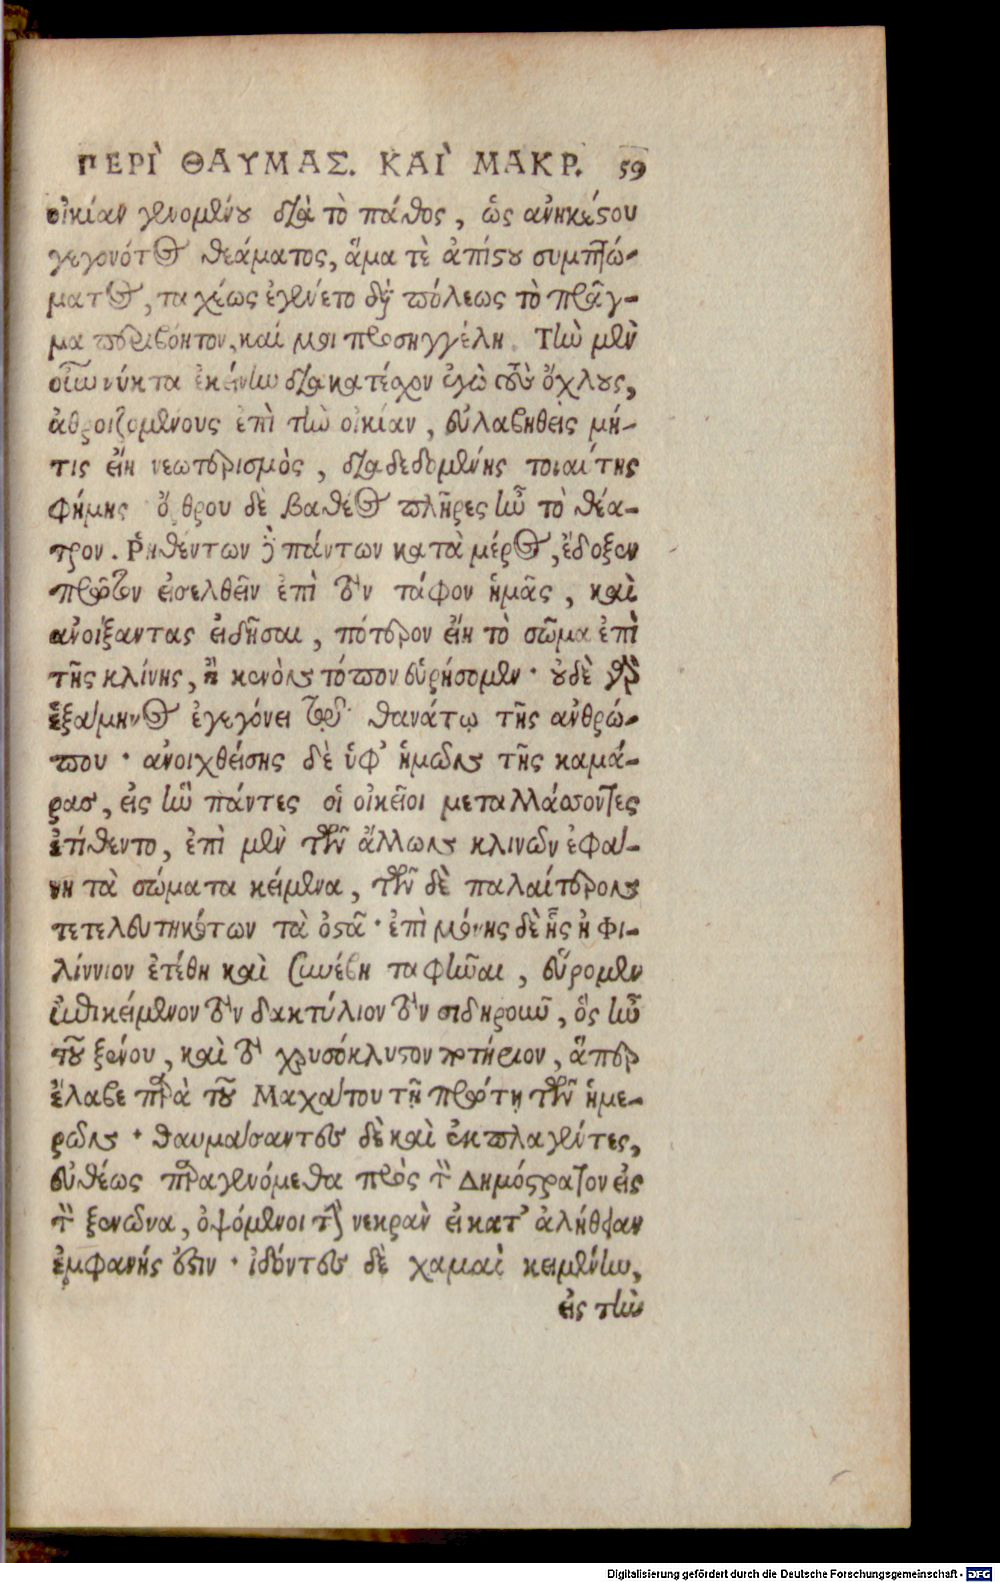 ΠΕΡΙ ΘΑΥΜΑΣ. ΚΑΙ ΜΑΚΡ. 59
οἰκίαν γενομένου διὰ τὸ πάθος, ὡς ἀνηκέστου
γεγονότος θεάματος, ἅμα τὲ ἀπίστου συμπτώ-
ματος, ταχέως ἐγένετο τῆς πόλεως τὸ πρᾶγ-
μα περιβόητον, καί μοι προσηγγέλη. Τὴν μὲν
οὖν νύκτα ἐκείνην διακατέχον ἐγὼ τοὺς ὄχλους,
ἀθροιζομένους ἐπὶ τὴν οἰκίαν, εὐλαβηθεὶς μή-
τις εἴη νεωτερισμὸς, διαδεδομένης τοιαύτης
φήμης ὄρθρου δὲ βαθέος πλῆρες ἦν τὸ θέα-
τρον. Ῥηθέντων δὲ πάντων κατὰ μέρος, ἔδοξεν
πρῶτον εἰσελθεῖν ἐπὶ τὸν τάφον ἡμᾶς, καὶ
ἀνοίξαντας εἰδῆσαι, πότερον εἴη τὸ σῶμα ἐπὶ
τῆς κλίνης, ἢ κενὸν τόπον εὑρήσομεν· οὐδὲ γὰρ
ἑξάμηνος ἐγεγόνει τῷ θανάτῳ τῆς ἀνθρώ-
που· ἀνοιχθείσης δὲ ὑφ' ἡμῶν τῆς καμά-
ρας, εἰς ἣν πάντες οἱ οἰκεῖοι μεταλλάσσοντες
ἐτίθεντο, ἐπὶ μὲν τῶν ἄλλων κλινῶν ἐφαί-
νη τὰ σώματα κείμενα, τῶν δὲ παλαίτερον
τετελευτηκότων τὰ ὀστᾶ· ἐπὶ μόνης δὲ ἧς ἡ Φι-
λίννιον ἐτέθη καὶ συνέβη ταφῆναι, εὕρομεν
ἐπικείμενον τὸν δακτύλιον τὸν σιδηροῦν, ὃς ἦν
τοῦ ξένου, καὶ τὸ χρυσόκλυστον ποτήριον, ἅπερ
ἔλαβε παρὰ τοῦ Μαχάτου τῇ πρώτῃ τῶν ἡμε-
ρῶν· θαυμάσαντες δὲ καὶ ἐκπλαγέντες,
εὐθέως παραγενόμεθα πρὸς τὸν Δημόστρατον εἰς
τὸν ξενῶνα, ὀψόμενοι τὴν νεκρὰν εἰ κατ' ἀλήθειαν
ἐμφανής ἐστιν· ἰδόντες δὲ χαμαὶ κειμένην,
εἰς τὴν
Digitalisierung gefördert durch die Deutsche Forschungsgemeinschaft - DFG